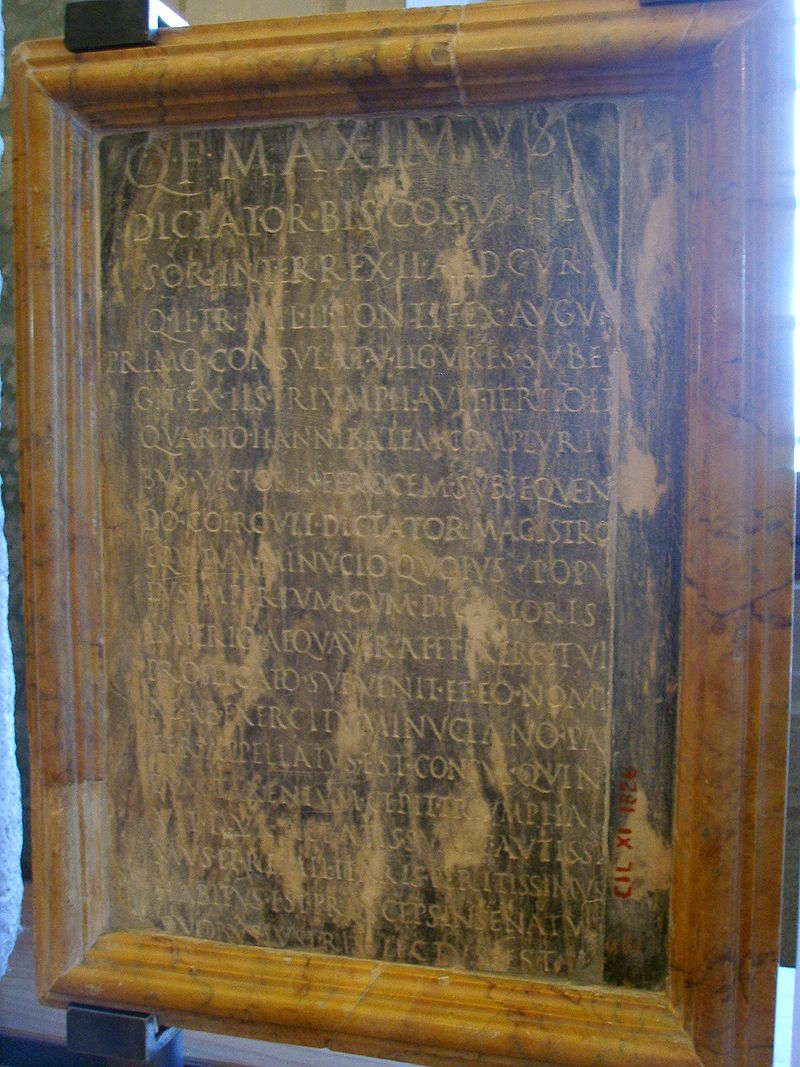 Q·F·MAXIMVS
DICTATOR·BIS·COS·V·CE
SOR·INTERREX·II·AED CVR
Q·II·TR·MIL·II·PONTIFEX·AVGVR
PRIMO·CONSVLATV·LIGVRES·SVBE
GIT·EX·IIS·TRIVMPHAVIT·TERTIO·ET
QVARTO·HANNIBALEM·COMPLVRI
BVS·VICTORIS·FEROCEM·SVBSEQVEN
DO·COERCVIT·DICTATOR·MAGISTRO
EQVITVM·MINVCIO·QVOIVS·POPV
LVS·IMPERIVM·CVM·DICTATORIS
IMPERIO·AEQVAVERAT·ET·EXERCITVI
PROFLIGATO·SVBVENIT·ET·EO·NOMI
NE·AB·EXERCITV·MINVCIANO·PA
TER·APPELLATVS·EST·CONSVL·QVIN
CEPIT·TRIVMPHA
CAVTISSI
MVS·ET·RE·MILITARIS·PERITISSIMVS
HABITVS·EST·PRINCEPS·IN·SENATV
DVOBVS·LVSTRIS·LECTVS·EST
CIL XI 1828